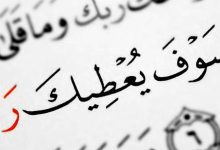 رَبُّكَ وَمَا قَلَىٰ
سَوْفَ يُعْطِيكَ رَ
٦